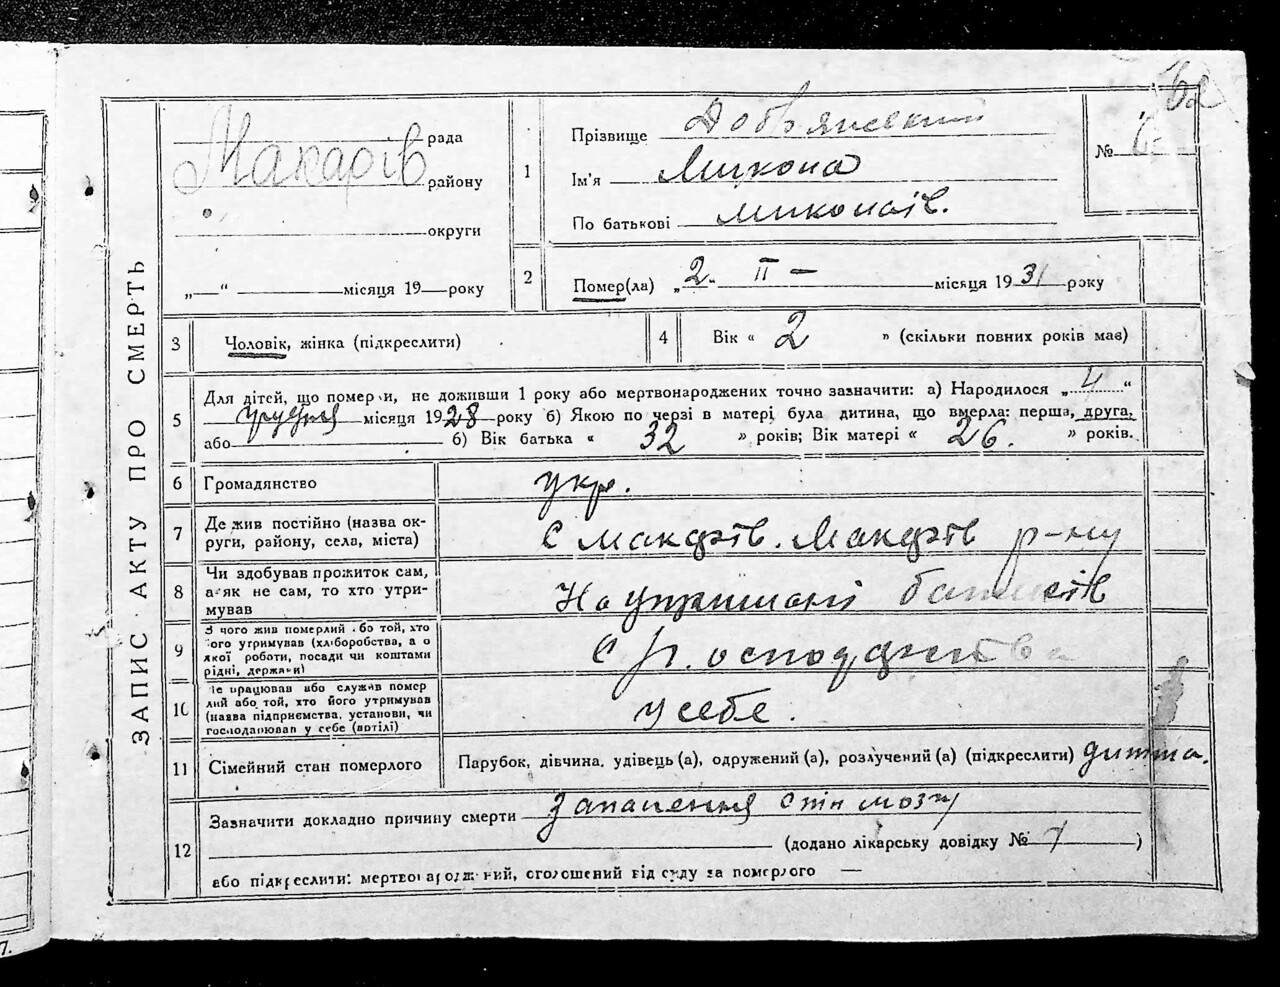 62
ЗАПИС АКТУ ПРО СМЕРТЬ
рада
Макарів району
округи
„—“ —місяця 19—року
1
Прізвище Добрянский
Ім'я Микола
По батькові миколаїв.
№
2
Помер(ла) „2“ II — місяця 1931 року
3
Чоловік, жінка (підкреслити)
4
Вік « 2 » (скільки повних років мав)
5
Для дітей, що померли, не доживши 1 року або мертвонароджених точно зазначити: а) Народилося „4“
грудня місяця 1928 року б) Якою по черзі в матері була дитина, що вмерла: перша, друга,
або б) Вік батька « 32 » років; Вік матері « 26. » років.
6
Громадянство
укр.
7
Де жив постійно (назва ок-
руги, району, села, міста)
С Макарів. Макарів р-ну
8
Чи здобував прожиток сам,
а як не сам, то хто утри-
мував
На утриманні батьків
9
З чого жив померлий або той, хто
його утримував (хліборобства, а о
якої роботи, посади чи коштами
рідні, держави)
С г. осподарства
10
Де працював або служив помер
лий або той, хто його утримував
(назва підприємства, установи, чи
господарював у себе (вртілі)
у себе.
11
Сімейний стан померлого
Парубок, дівчина, удівець (а), одружений (а), розлучений (а) (підкреслити) дитта.
12
Зазначити докладно причину смерти Запалення стін мозгу
(додано лікарську довідку № 7 )
або підкреслити: мертвонароджений, оголошений від суду за померлого —
7.